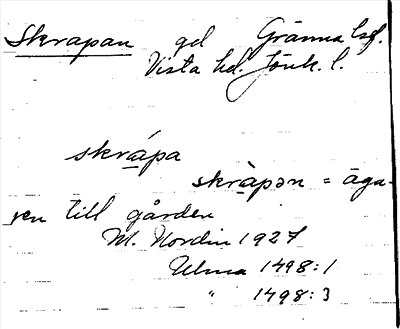 Skrapan gd Gränna lsf.
Vista hd. Jönk. l.
skrápa
skràpən = äga-
ren till gården
M. Nordin 1927
Ulma 1498:1
" 1498:3